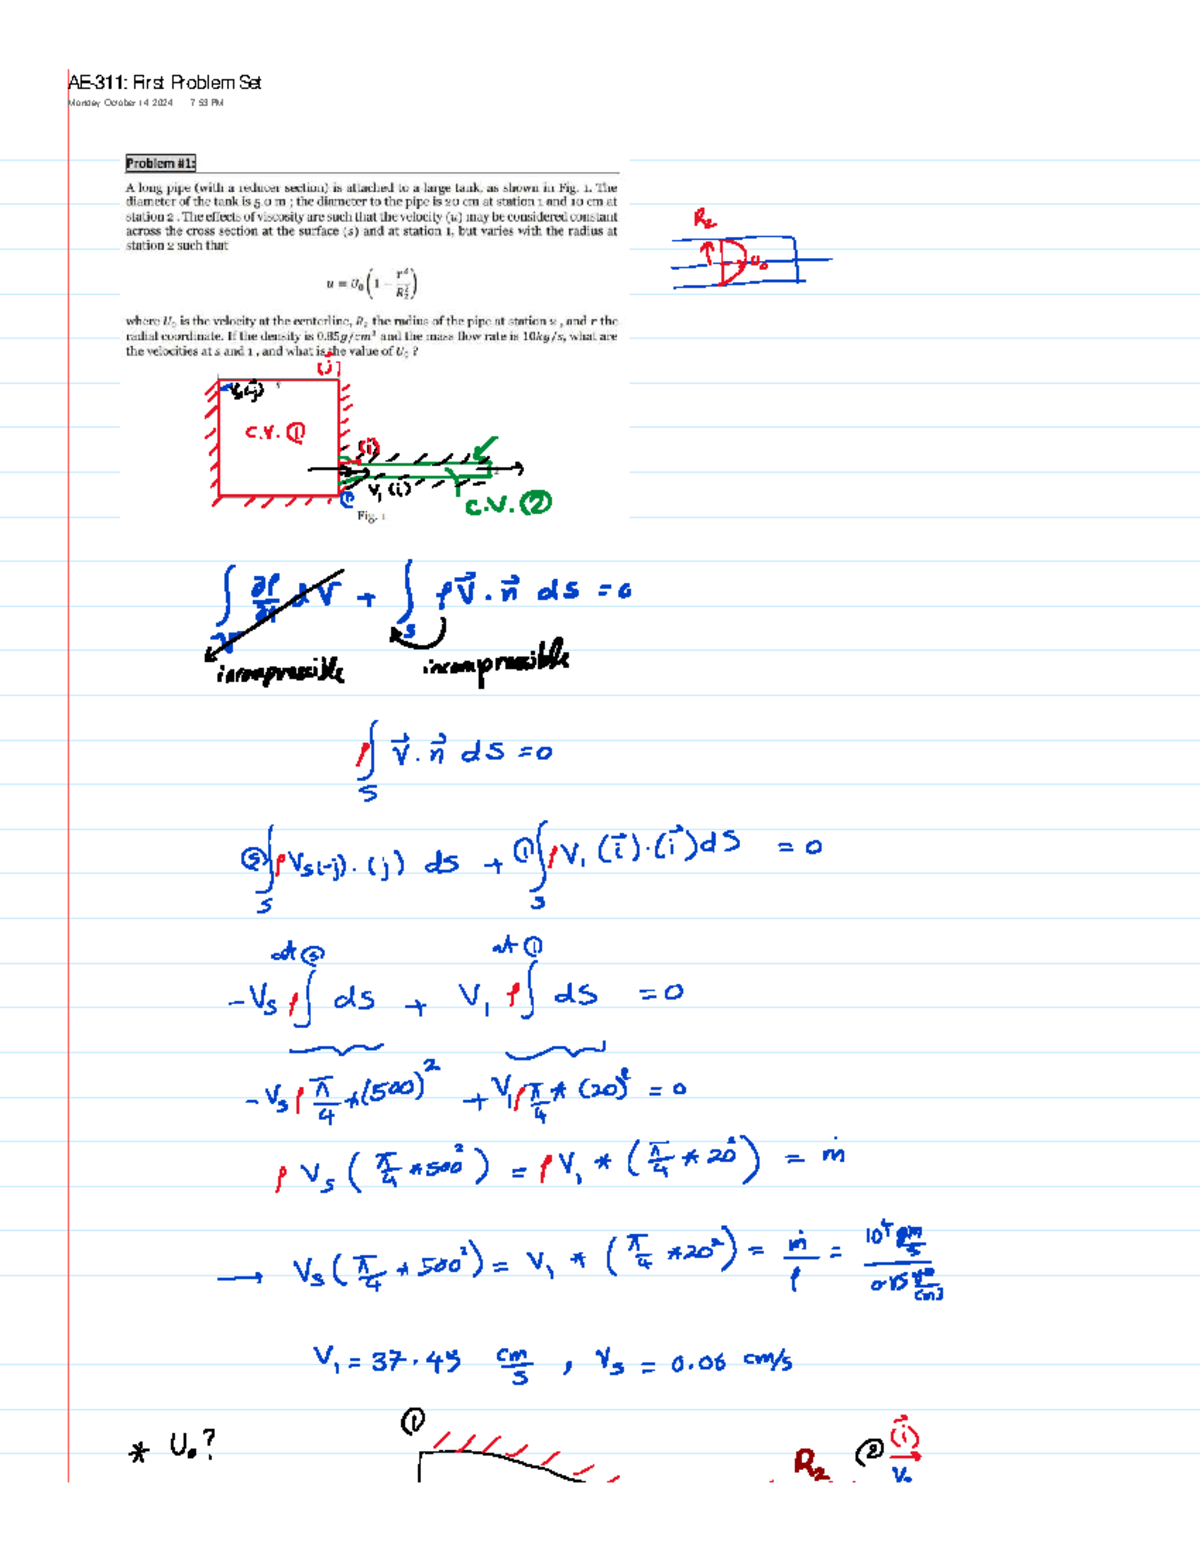 AE-311: First Problem Set
Monday, October 14, 2024 7:53 PM
Problem #1:
A long pipe (with a reducer section) is attached to a large tank, as shown in Fig. 1. The
diameter of the tank is 5.0 m ; the diameter to the pipe is 20 cm at station 1 and 10 cm at
station 2 . The effects of viscosity are such that the velocity (u) may be considered constant
across the cross section at the surface (s) and at station 1, but varies with the radius at
station 2 such that
R₂
U₀
u = U₀(1 - r²/R₂²)
where U₀ is the velocity at the centerline, R₂ the radius of the pipe at station 2 , and r the
radial coordinate. If the density is 0.85g/cm³ and the mass flow rate is 10kg/s, what are
the velocities at s and 1 , and what is the value of U₀ ?
(j)
C.V. ①
(i)
V₁ (i)
①
C.V. ②
Fig. 1
∫ ∂ρ/∂t dV + ∫_S ρV⃗ . n⃗ dS = 0
incompressible incompressible
ρ∫_S V⃗ . n⃗ dS = 0
Ⓢ∫_S ρVs(-j) . (j) dS + ①∫_S ρV₁ (i⃗) . (i⃗) dS = 0
at Ⓢ at ①
-Vs ρ∫ dS + V₁ ρ∫ dS = 0
-Vs ρ π/4 * (500)² + V₁ρ π/4 * (20)² = 0
ρ Vs (π/4 * 500²) = ρV₁ * (π/4 * 20²) = ṁ
→ Vs (π/4 * 500²) = V₁ * (π/4 * 20²) = ṁ/ρ = 10⁴ gm/s / 0.85 gm/cm3
V₁ = 37.45 cm/s , Vs = 0.06 cm/s
* U₀? ① R₂ ② (i⃗)
V₀